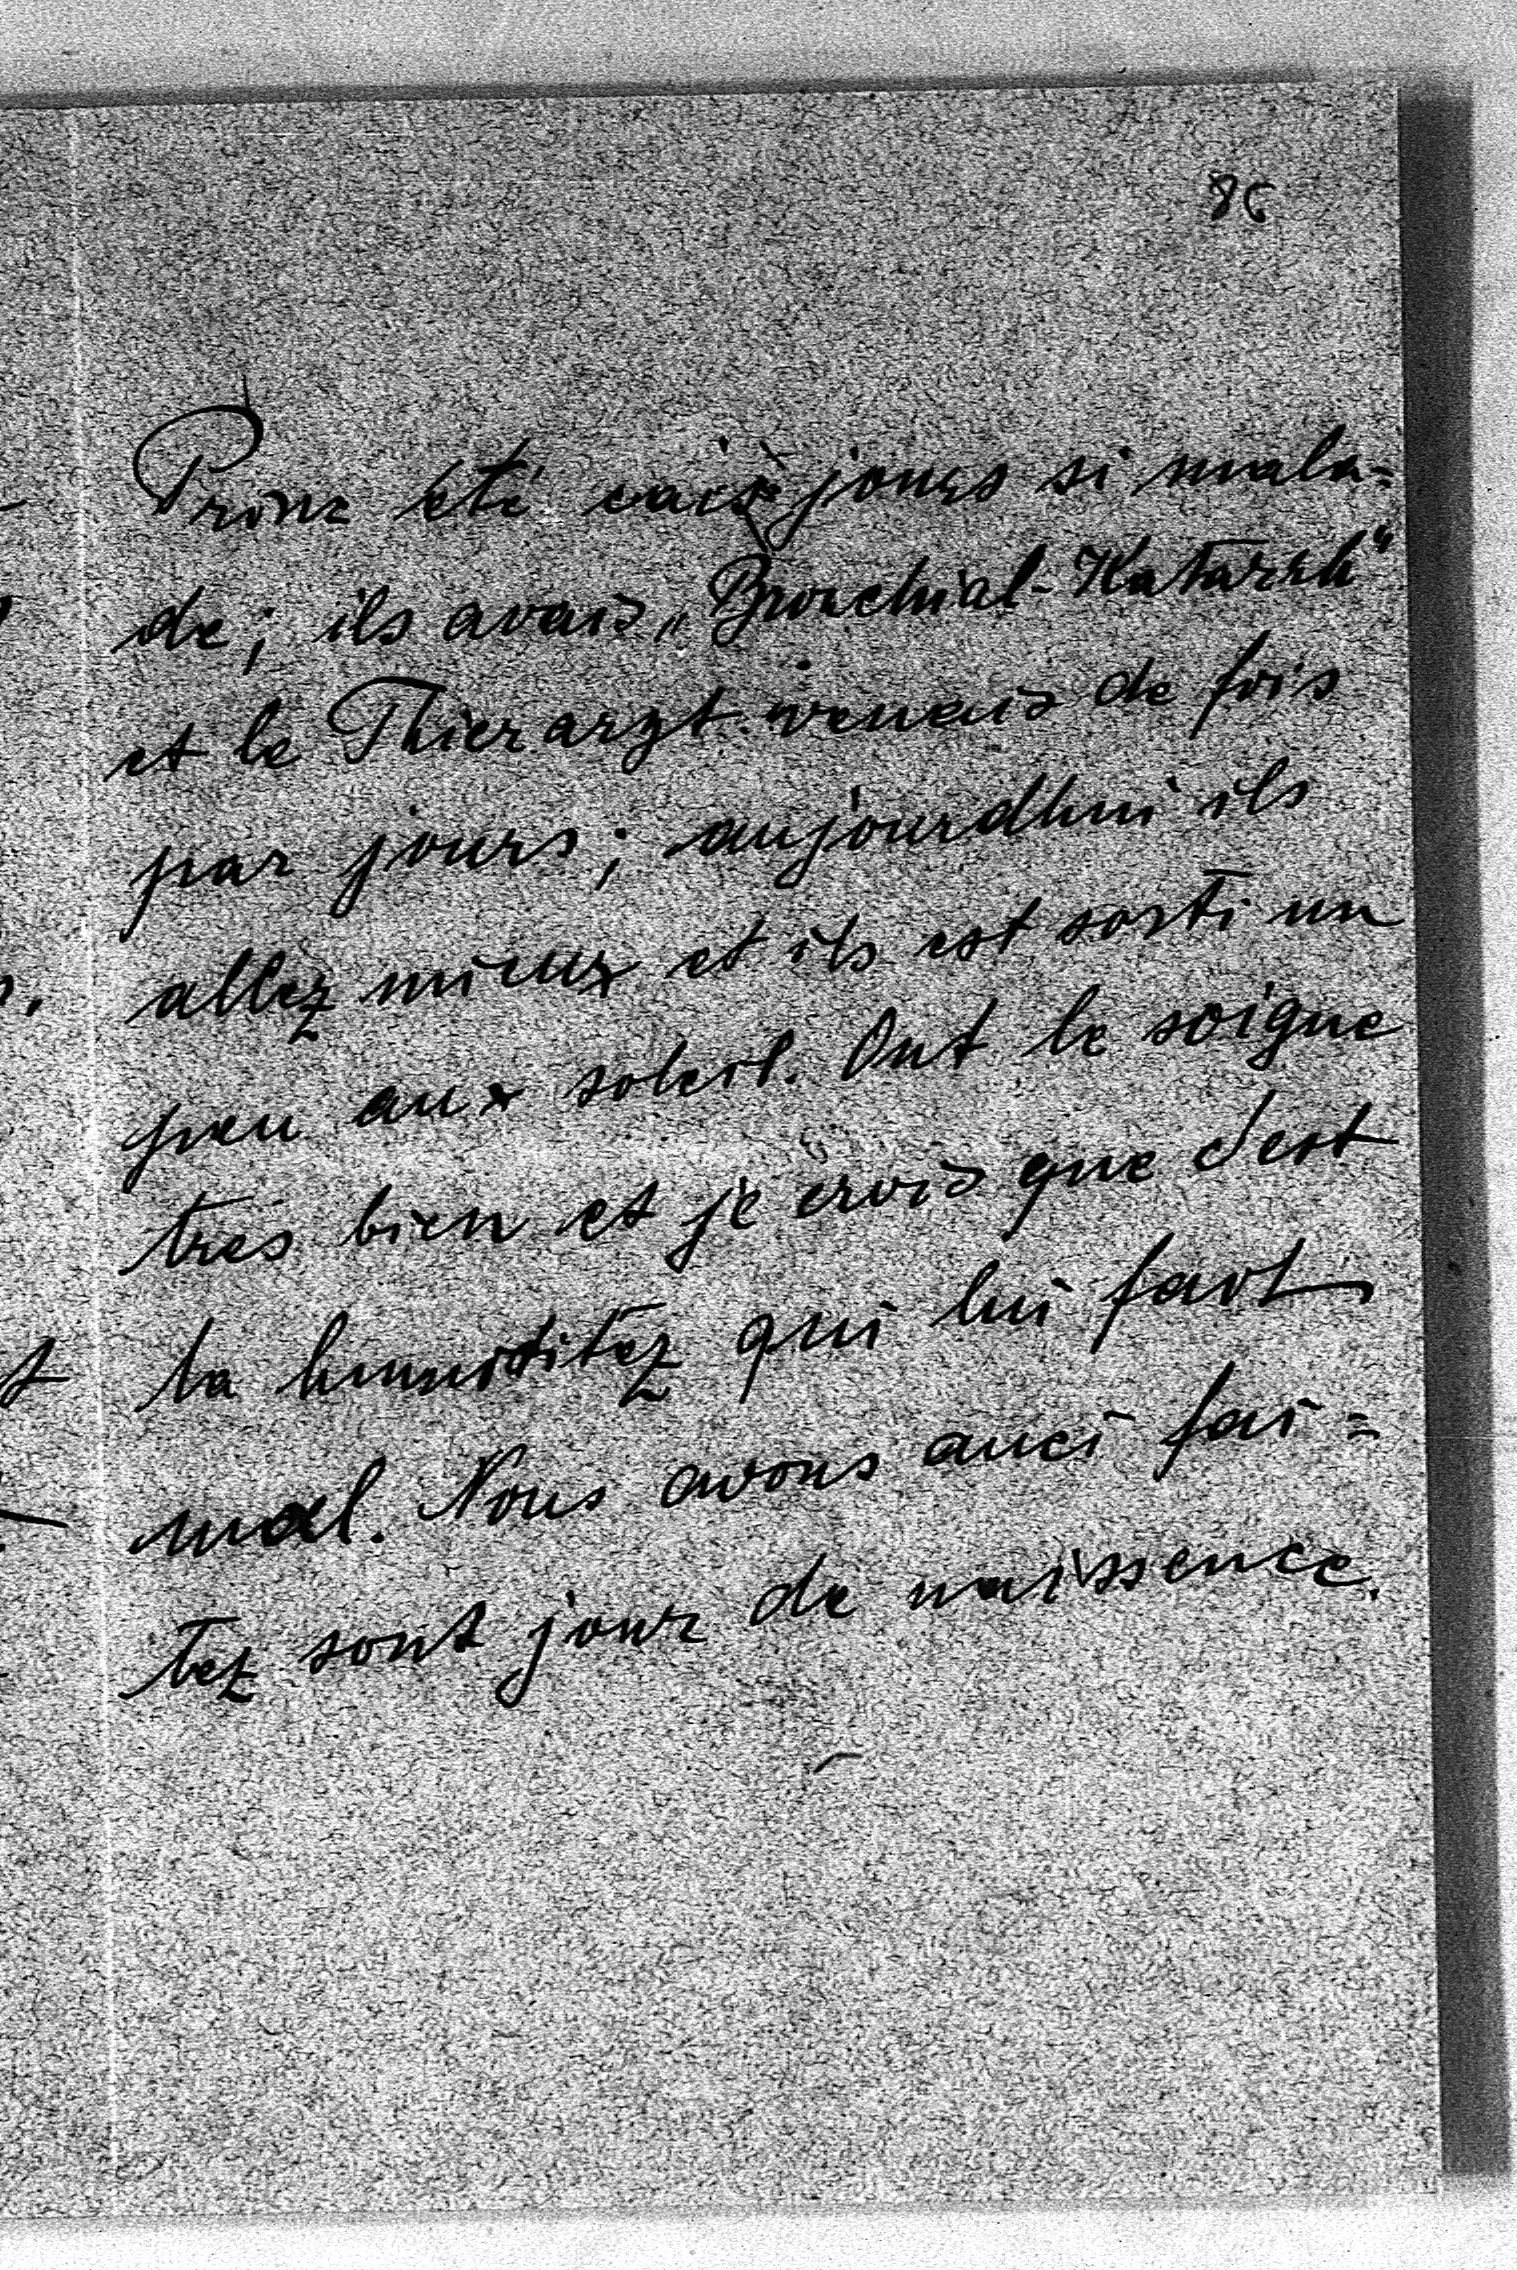 86
Prinz été cais jours si mala-
de; ils avais „Bronchial-Katarrh“
et le Thierarzt venais de fois
par jours; aujourdhui ils
allez mieux et ils est sorti un
peu aux soleil. Ont le soigne
trés bien et je crois que c'est
la humititez qui lui fait
mal. Nous avons auci fai=
tez sont jour de naissence.